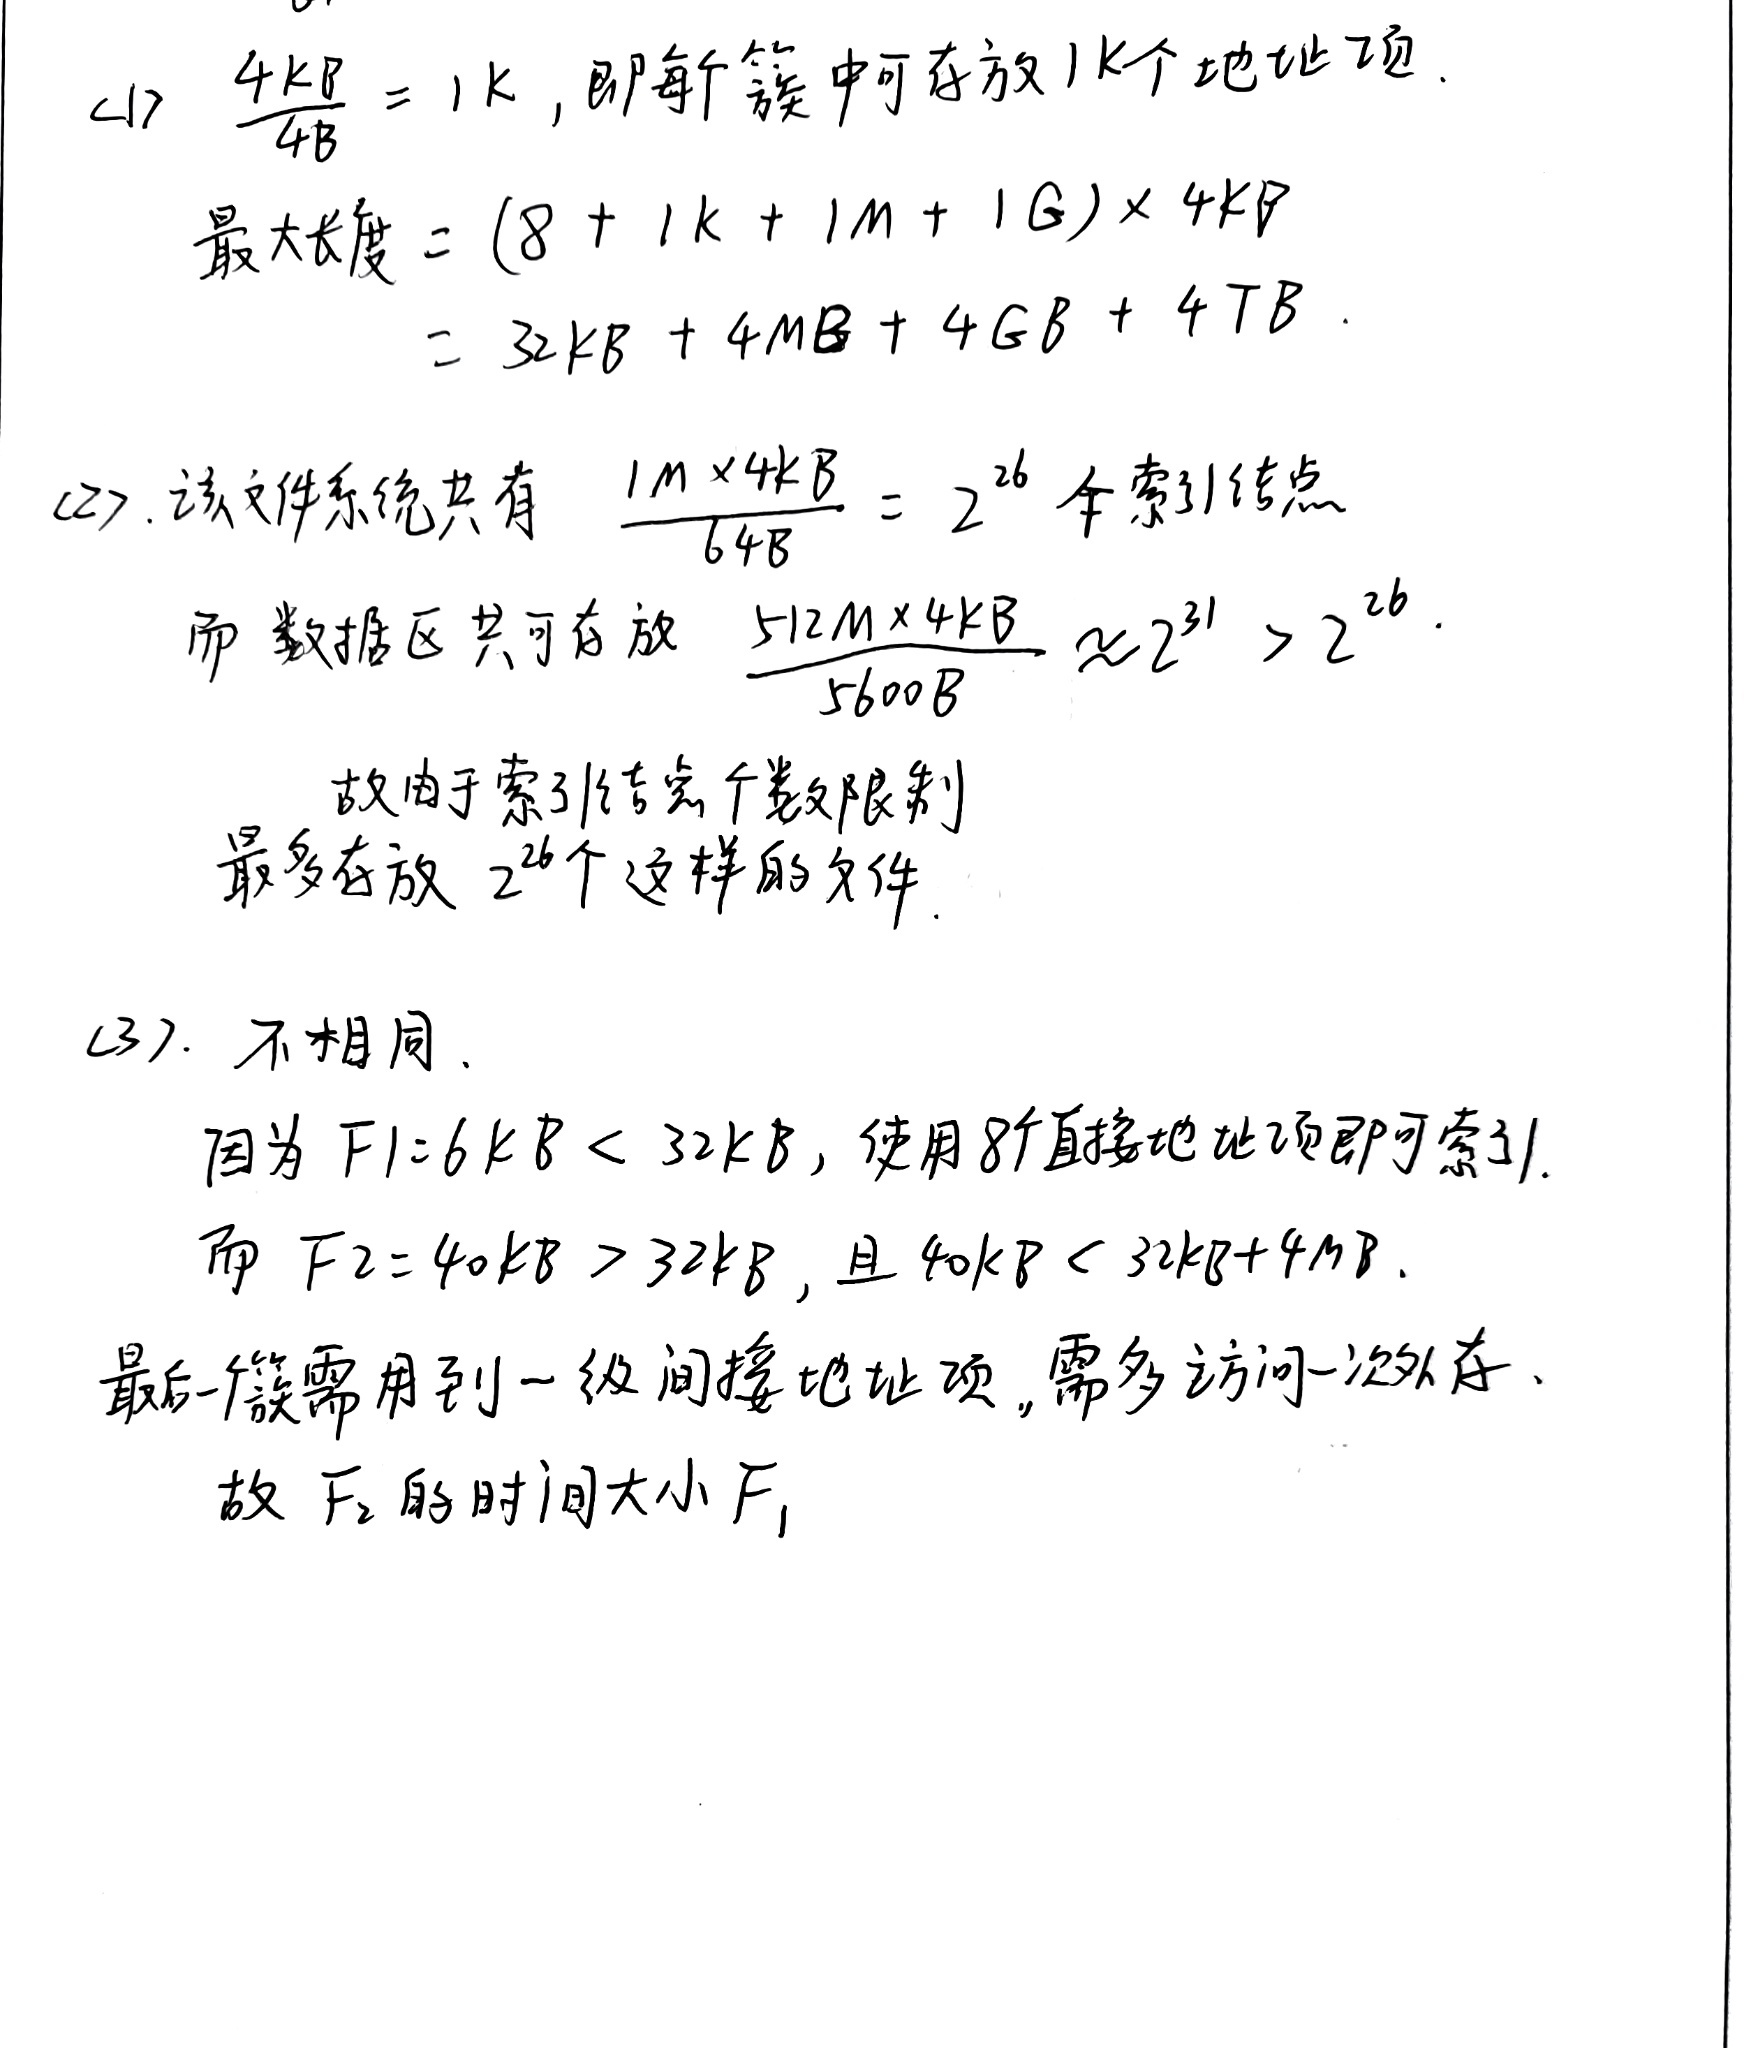 (1) 4KB/4B = 1K, 即每个簇中可存放1K个地址项.
最大长度 = (8 + 1K + 1M + 1G) × 4KB
= 32KB + 4MB + 4GB + 4TB.
(2). 该文件系统共有 1M×4KB/64B = 2^26 个索引结点
而数据区共可存放 512M×4KB/5600B ≈ 2^31 > 2^26.
故由于索引结点个数限制
最多存放 2^26个这样的文件.
(3). 不相同.
因为 F1=6KB < 32KB, 使用8个直接地址项即可索引.
而 F2=40KB > 32KB, 且 40KB < 32KB+4MB.
最后一个簇需用到一级间接地址项, 需多访问一次外存、
故 F₂ 的时间大小 F₁